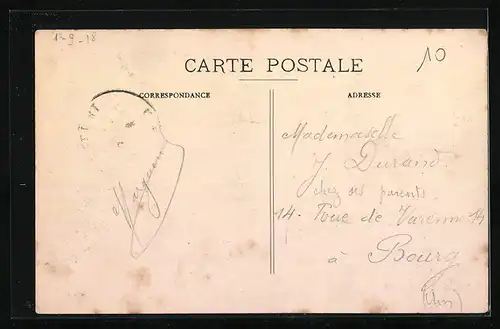 13-9-18
10
CARTE POSTALE
CORRESPONDANCE
ADRESSE
Mademoiselle
J. Durand
chez ses parents
14 Rue de Varenn 14
à Bourg
(Ain)